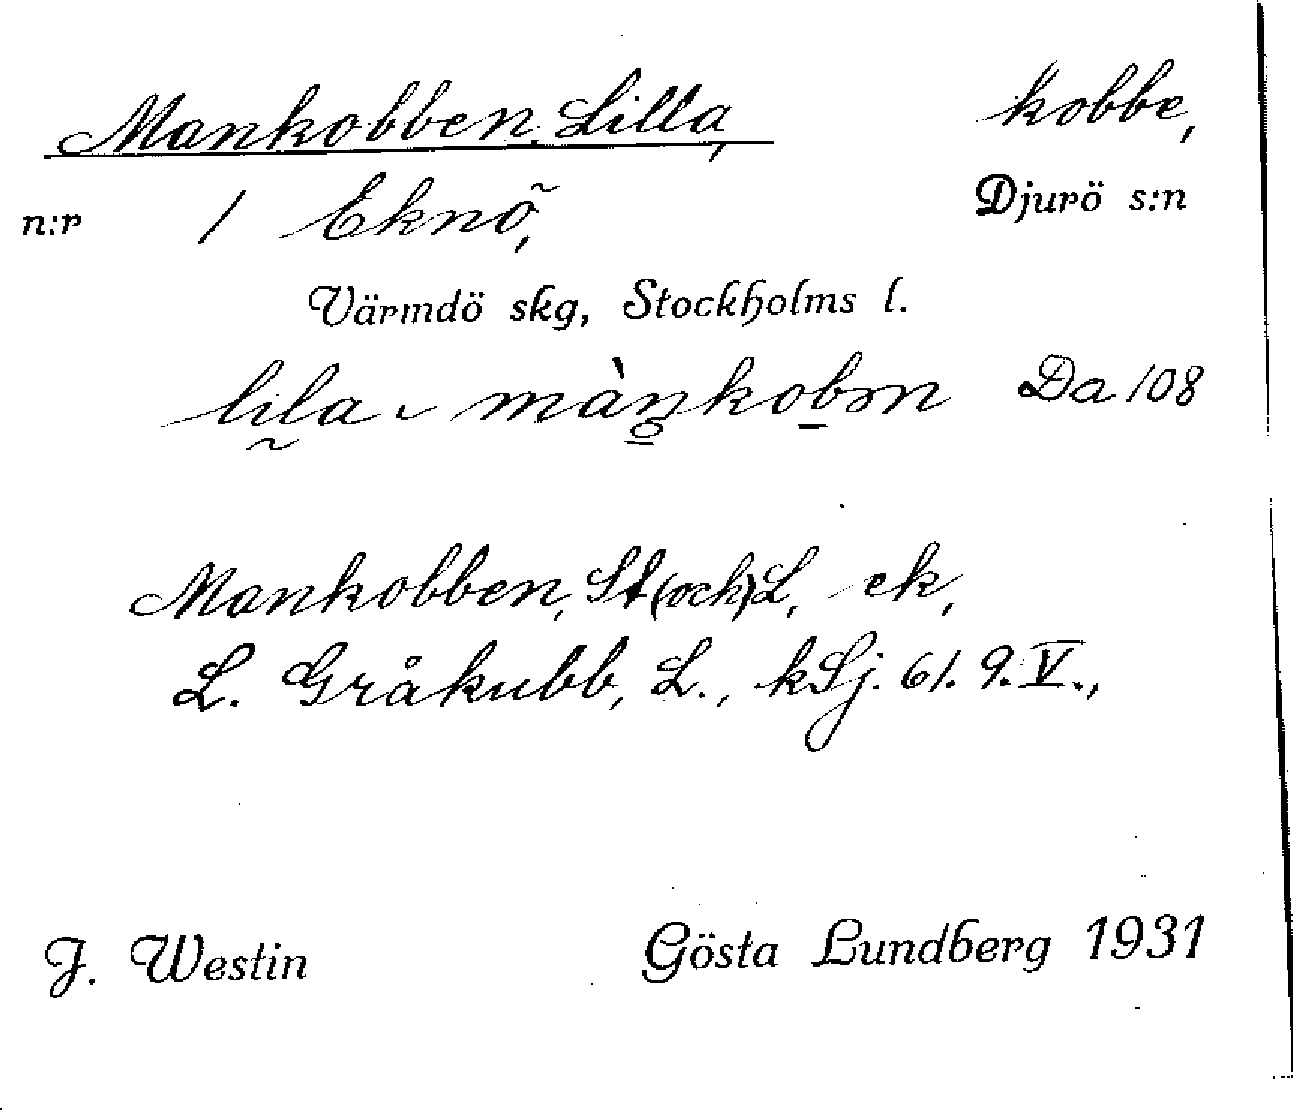 Mankobben, Lilla, kobbe,
n:r 1 Eknö, Djurö s:n
Värmdö skg, Stockholms l.
lila - màŋkobm Da 108
Mankobben, St (och) L, ek,
L. Gråkubb, L., kSj. 61. 9. V.,
J. Westin Gösta Lundberg 1931